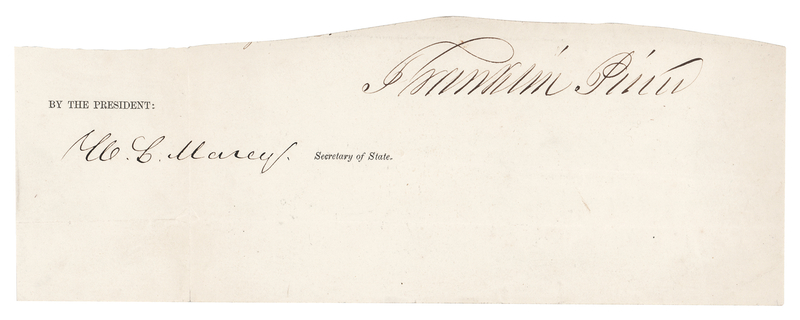 Franklin Pierce
BY THE PRESIDENT:
W. L. Marcy. Secretary of State.